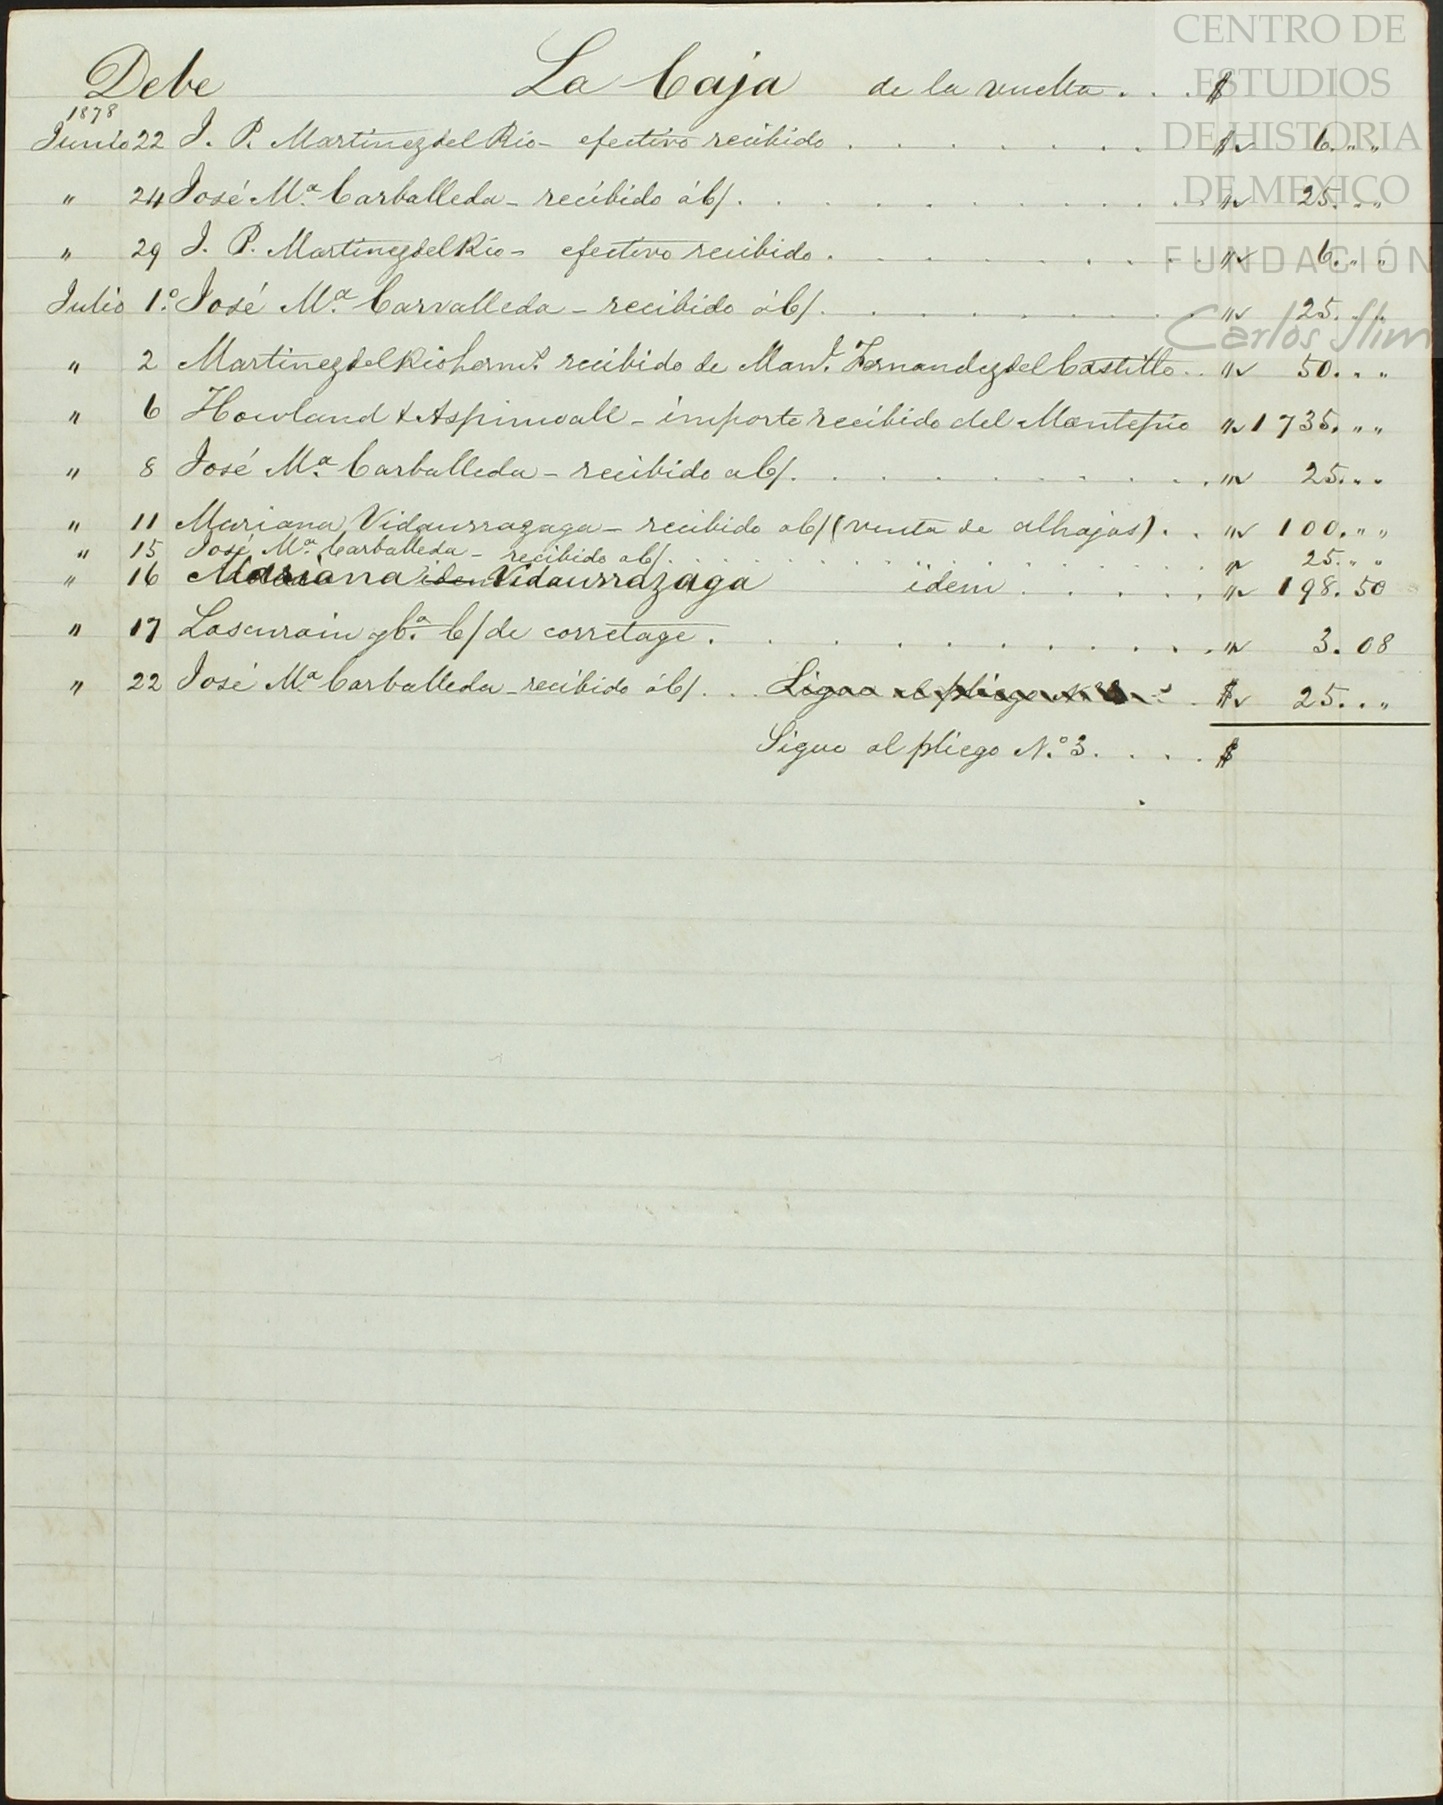 CENTRO DE
ESTUDIOS
DE HISTORIA
DE MEXICO
FUNDACIÓN
Carlos Slim
Debe La Caja de la vuelta . . . $
1878
Junio 22 J. P. Martinez del Rio - efectivo recibido . . . . . . . " 6. " "
" 24 José Mª. Carballeda - recibido á c/ . . . . . . . " 25. " "
" 29 J. P. Martinez del Rio - efectivo recibido . . . . . . . " 6. " "
Julio 1º. José Mª. Carvalleda - recibido á c/ . . . . . . . " 25. " "
" 2 Martinez del Rio herms. recibido de Manl. Fernandez del Castillo . . " 50. " "
" 6 Howland & Aspinwall - importe recibido del Montepio " 1735. " "
" 8 José Mª. Carballeda - recibido a c/ . . . . . . . " 25. " "
" 11 Mariana Vidaurrazaga - recibido a c/ (venta de alhajas) . . " 100. " "
" 15 José Mª. Carballeda - recibido a c/ . . . . . . . " 25. " "
" 16 Mariana Vidaurrazaga idem . . . . . " 198. 50
" 17 Lascurain y Cª. C/ de corretage . . . . . . . " 3. 08
" 22 José Mª. Carballeda - recibido á c/ . . . Sigue al pliego . . $ 25. " "
Sigue al pliego N.º 3. . . . . $